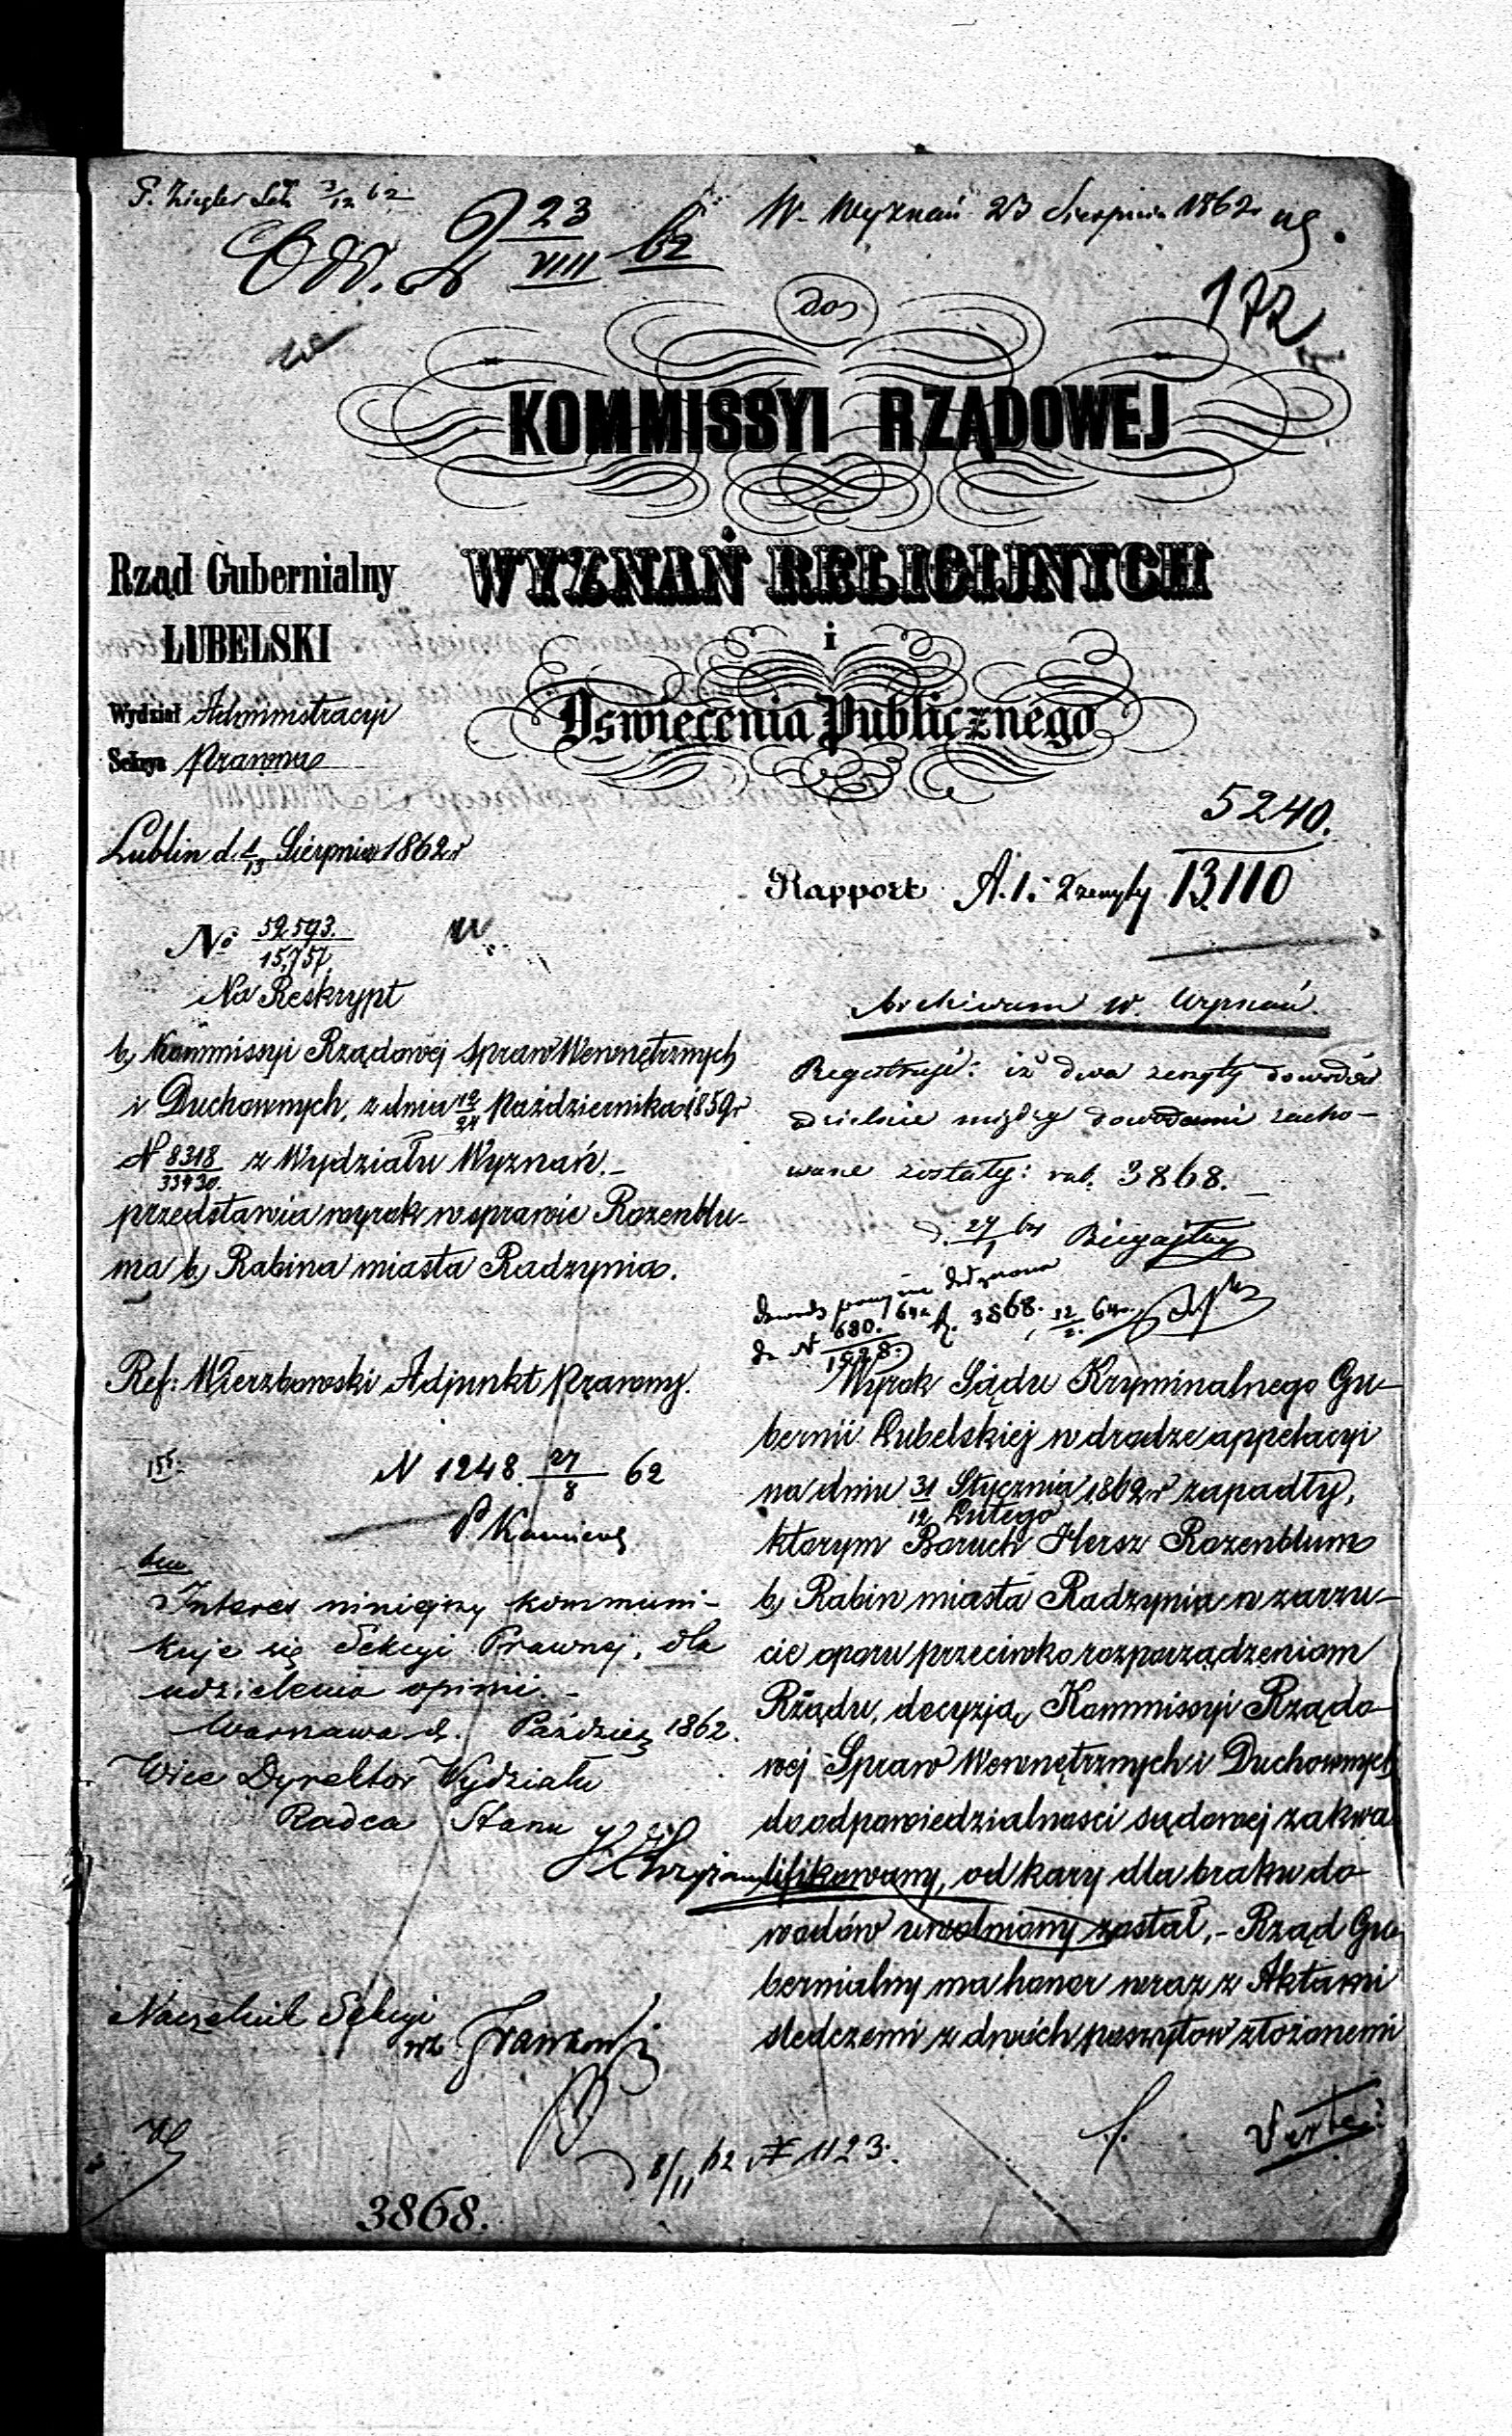 W. Wyznań 23 Sierpnia 1862
Odd. d 23/VIII 62
172
do
KOMMISSYI RZĄDOWEJ
WYZNAŃ RELIGIJNYCH
i
Oświecenia Publicznego
Rząd Gubernialny
LUBELSKI
Wydział Administracyi
Sekcya Prawna
Lublin d. 1/13 Sierpnia 1862 r
No 52,593./15,757.
Na Reskrypt
b. Kommissyi Rządowej Spraw Wewnętrznych
i Duchownych, z dnia 12/24 Października 1859 r
N 8318/33930. z Wydziału Wyznań.
przedstawia wyrok w sprawie Rozenblu-
ma b. Rabina miasta Radzynia.
Ref: Wierzbowski Adjunkt Prawny.
N 1248. 27/8 62
Interes niniejszy kommuni-
kuje się Sekcyi Prawnej, dla
udzielenia opinii.
Warszawa d. Paździer 1862.
Wice Dyrektor Wydziału
Radca Stanu
Naczelnik Sekcyi
8/11 62 N 1123.
3868.
5240.
Rapport A. 1. 2 zeszyty 13,110
Archiwum W. Wyznań.
Registruje: iż dwa zeszyty dowodów
oddzielnie między dowodami zacho-
wane zostały: rub. 3868.
3868.
Wyrok Sądu Kryminalnego Gu-
bernii Lubelskiej w drodze appelacyi
na dniu 31 Stycznia/12 Lutego 1862 r zapadły,
ktorym Boruch Hersz Rozenblum
b. Rabin miasta Radzynia w zarzu-
cie oporu przeciwko rozporządzeniom
Rządu, decyzją Kommissyi Rządo-
wej Spraw Wewnętrznych i Duchownych
do odpowiedzialnosci sądowej zakwa
lifikowany, od kary dla braku do
wodów uwolniony został,- Rząd Gu
bernialny ma honor wraz z Aktami
sledczemi z dwóch poszytow złożonemi
Verte